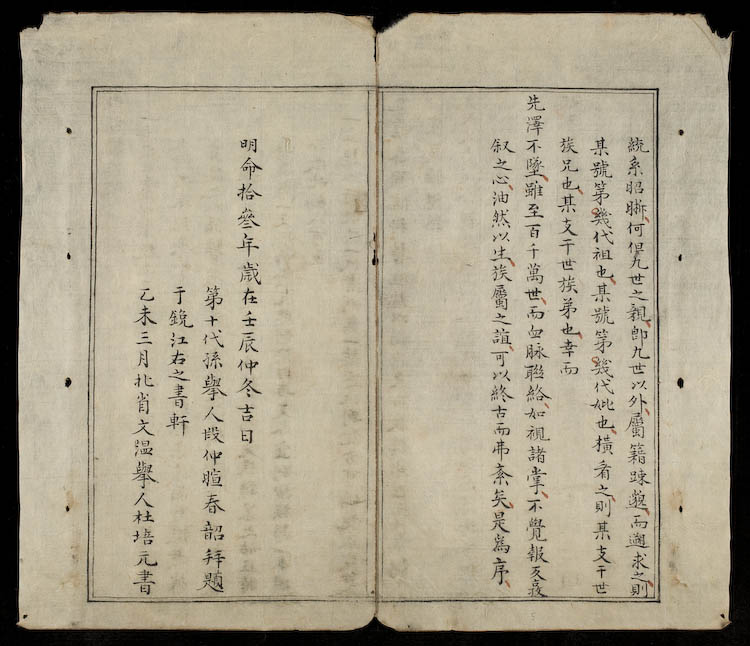 統系昭晰何但九世之親即九世以外屬籍踈邈而遡求之則
某號第幾代祖也某號第幾代妣也橫看之則某支干世
族兄也某支干世族弟也幸而
先澤不墜雖至百千萬世而血脉聯絡如視諸掌不覺報反
叙之心油然以生族屬之誼可以終古而弗紊矣是爲序
明命拾叄年歲在壬辰仲冬吉日
第十代孫擧人段仲暄春韶拜題
于鋭江右之書軒
乙未三月北肖文温擧人杜培元書